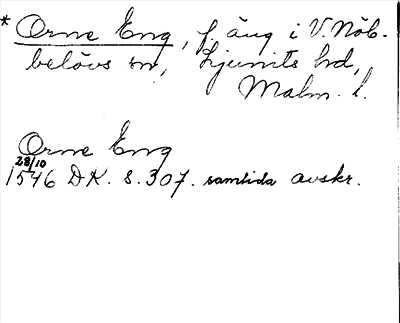 * Orne Eng, f. äng i V. Nöb-
belövs sn, Ljunits hd,
Malm. l.
Orne Eng
28/10
1546 DK. s. 307. samtida avskr.